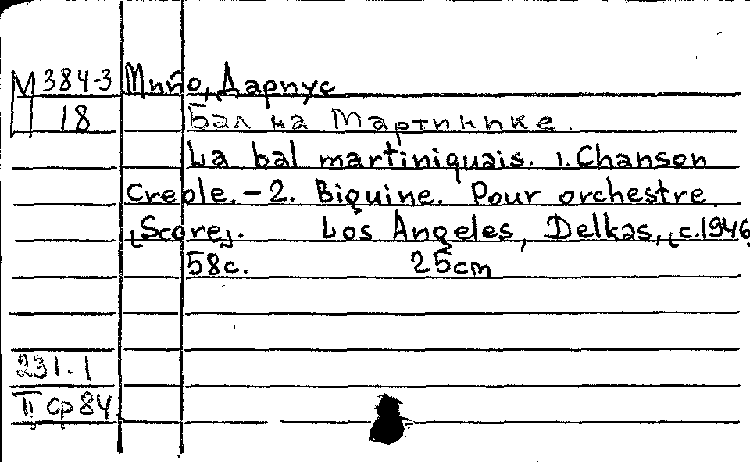 М 384-3 Мийо, Дариус
18 Бал на Мартинике.
La bal martiniquais. 1. Chanson
Creole. - 2. Biguine. Pour orchestre
[Score]. Los Angeles, Delkas, [c.1946
58c. 25cm
231.1
II ср 84